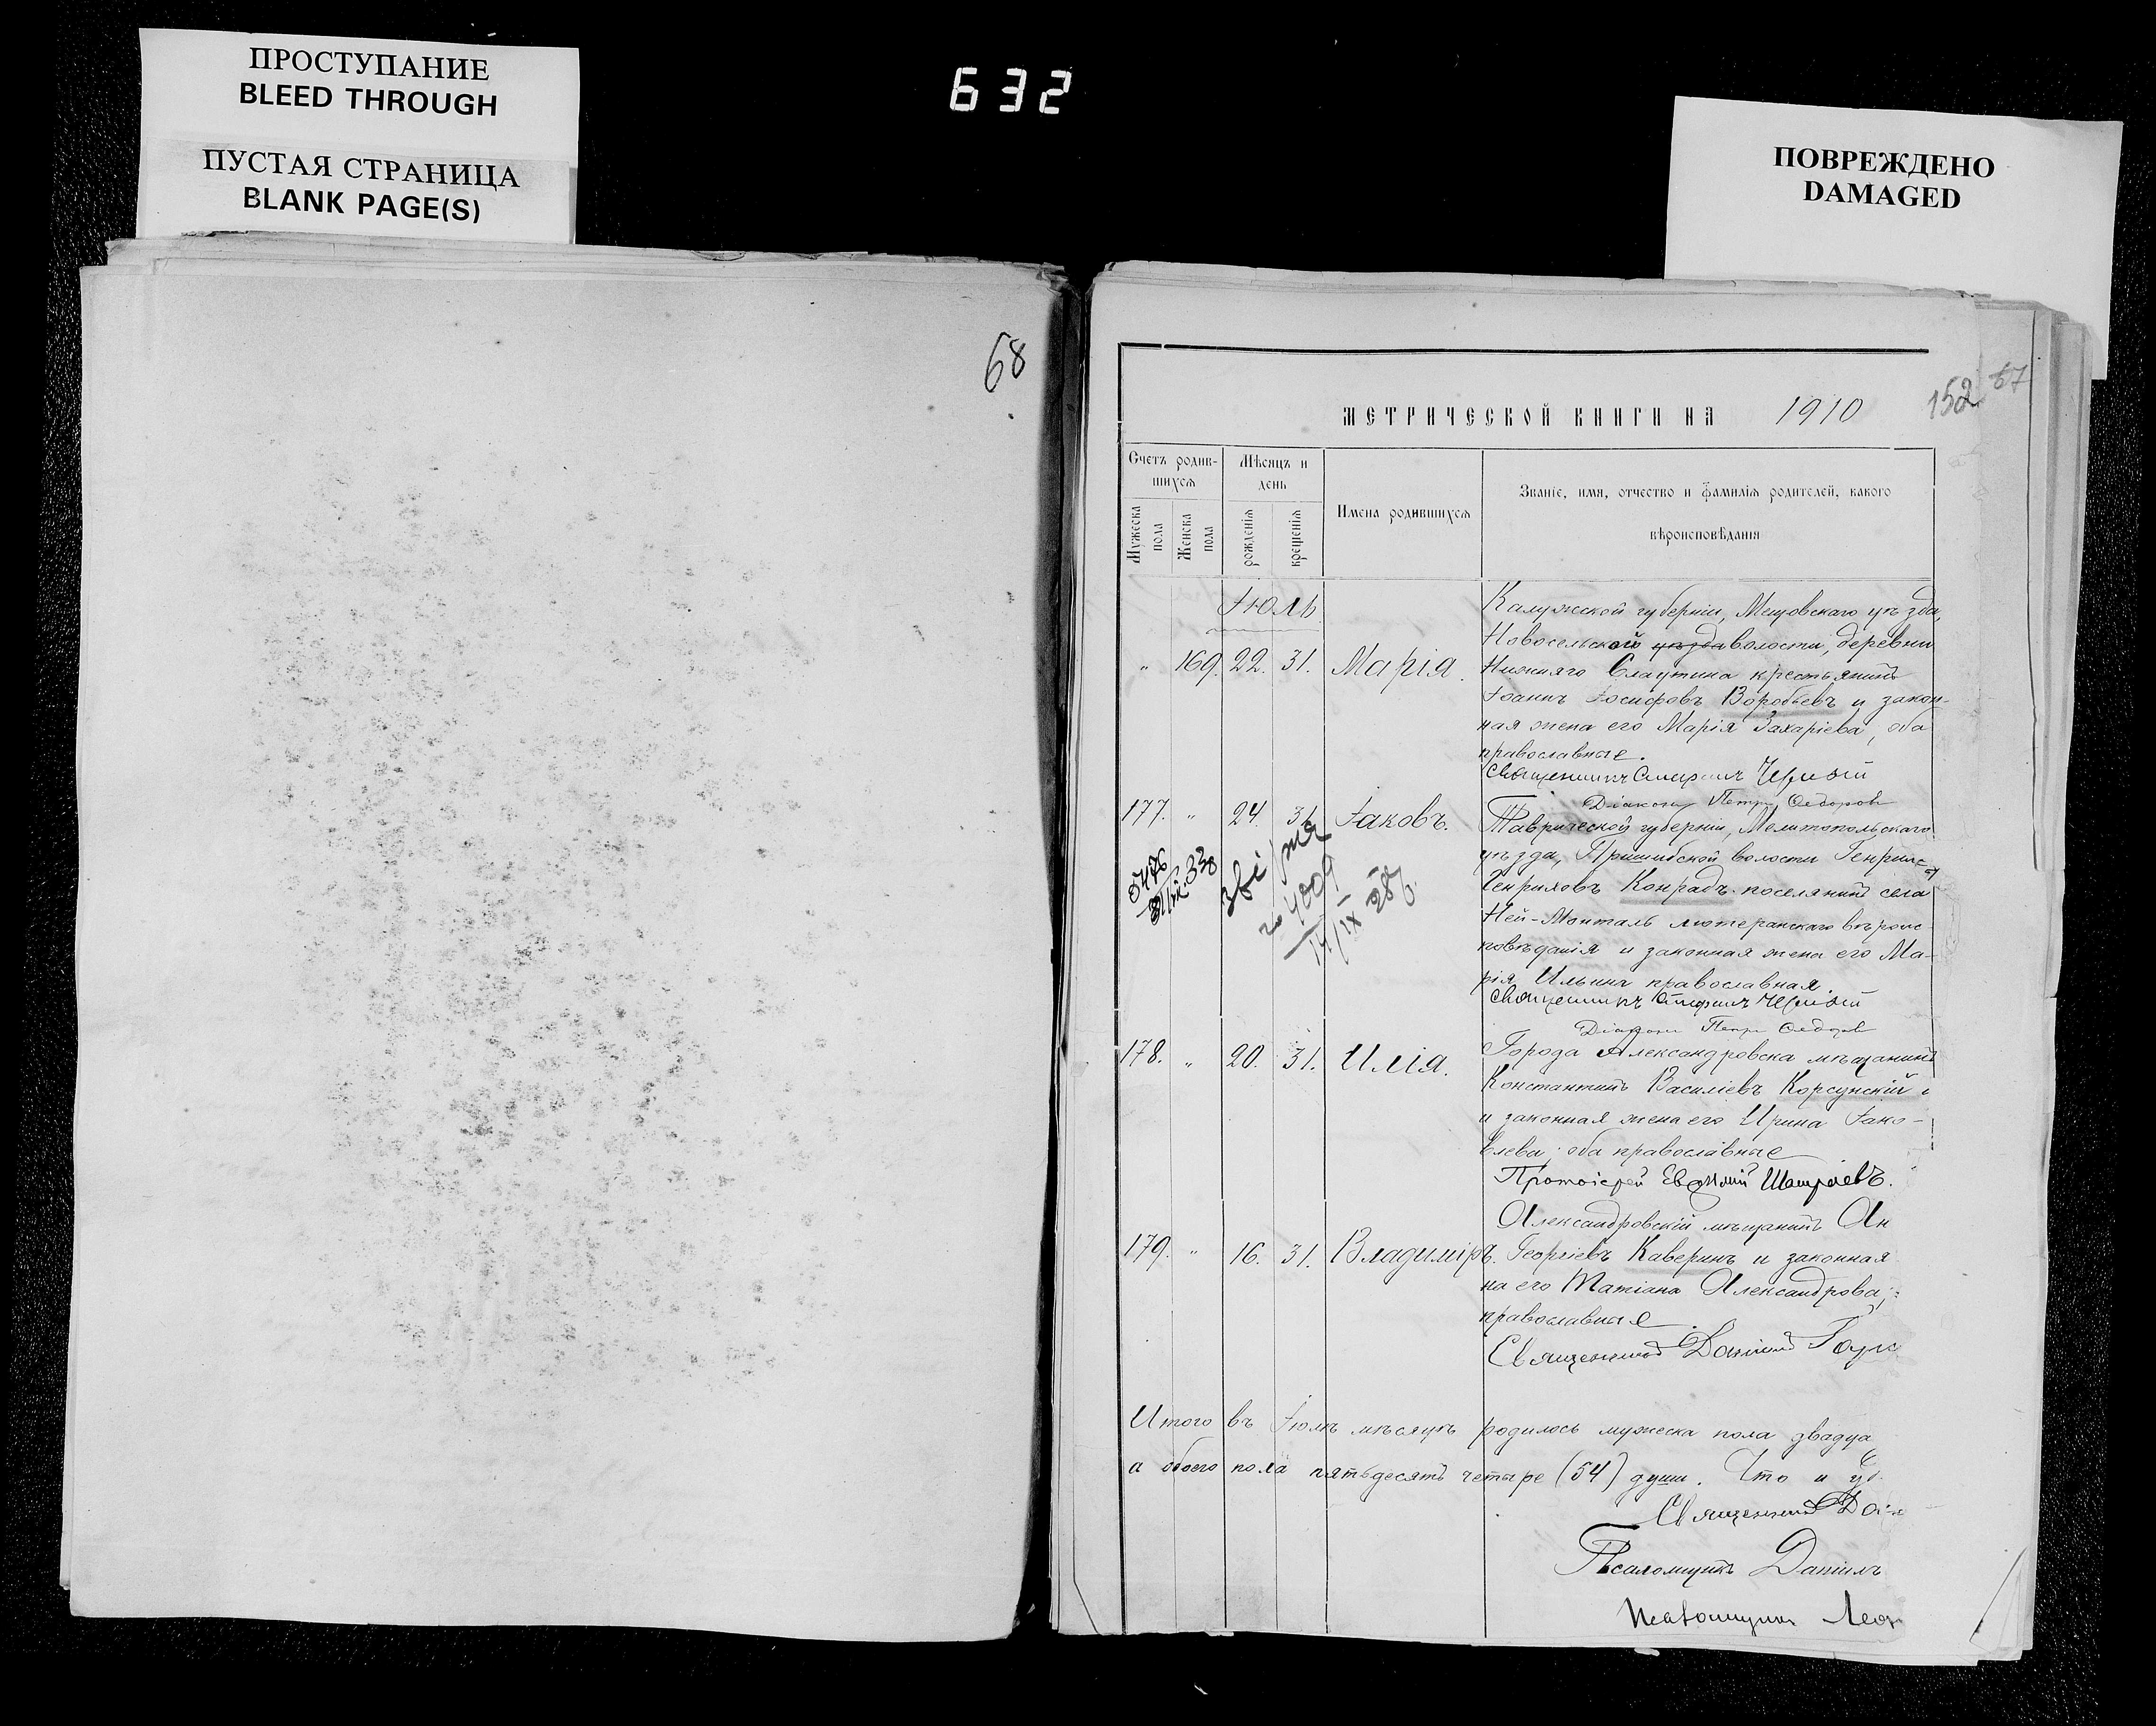 ПРОСТУПАНИЕ
BLEED THROUGH
ПУСТАЯ СТРАНИЦА
BLANK PAGE(S)
632
ПОВРЕЖДЕНО
DAMAGED
68
152 67
МЕТРИЧЕСКОЙ КНИГИ НА 1910
Счетъ родив-
шихся
Мужеска пола
Женска пола
Мѣсяцъ и
день
рожденія
крещенія
Имена родившихся
Званіе, имя, отчество и фамилія родителей, какого
вѣроисповѣданія
Іюль
" 169. 22. 31. Марія.
Калужской губерніи, Мещовскаго уѣзда,
Новосельской уѣзда волости, деревни
Нижняго Слаутина крестьянинъ
Іоаннъ Іосифовъ Воробьевъ и закон-
ная жена его Марія Захаріева, оба
православные.
Священникъ Черный
Діаконъ Петръ Федоровъ
177. " 24. 31. Іаковъ.
Таврической губерніи, Мелитопольскаго
уѣзда, Пришибской волости Генрихъ
Генриховъ Конрадъ поселянинъ села
Ней-Монталь лютеранскаго вѣроис-
повѣданія и законная жена его Ма-
рія Ильина православная.
Священникъ Черный
Діаконъ Петръ Федоровъ
5476
4009
14/IX 28
178. " 20. 31. Илія.
Города Александровска мѣщанинъ
Константинъ Василіевъ Корсунскій
и законная жена его Ирина Іако-
влева; оба православные
Протоіерей Евѳимій
179. " 16. 31. Владиміръ.
Александровскій мѣщанинъ Ан
Георгіевъ Каверинъ и законная
на его Татіана Александрова;
православные.
Священникъ Даніилъ
Итого въ Іюлѣ мѣсяцѣ родилось мужеска пола двадца
а обоего пола пятьдесятъ четыре (54) души. Что и уд
Священникъ Дан
Псаломщикъ Даніилъ
Псаломщикъ Леон